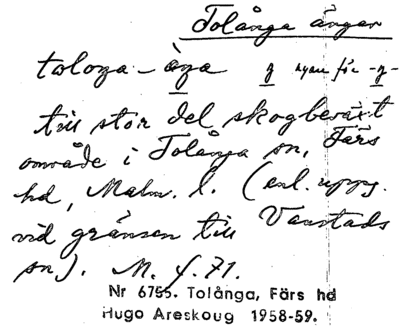 Tolånga ängar
toloŋa - äŋa ŋ
för -ŋ-
till stor del skogbeväxt
område i Tolånga sn, Färs
hd, Malm. l. (enl. upps.
vid gränsen till Vanstads
sn). M. f. 71.
Nr 6755. Tolånga, Färs hd
Hugo Areskoug 1958-59.